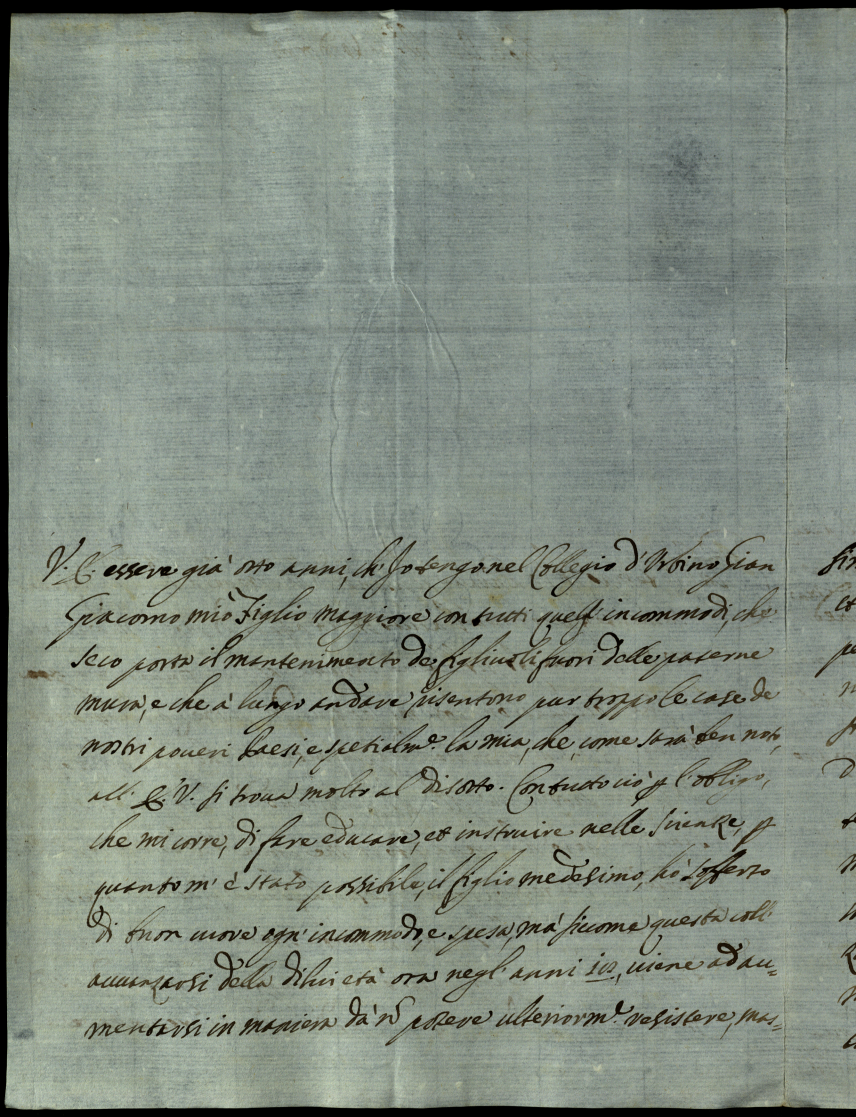 V. E. essere già otto anni, ch'Io tengo nel Collegio d'Urbino Gian
Giacomo mio Figlio maggiore con tutti quest' incommodi, che
seco porta il mantenimento de figliuoli fuori delle paterne
mura, e che à lungo andare risentono pur troppo le case de
nostri poveri Paesi, e spetialm.e la mia, che, come sarà ben noto,
all' E. V. si trova molto al disotto. Contuttociò p l'obligo,
che mi corre, di fare educare, et instruire nelle scienze, p
quanto m' è stato possibile, il figlio medesimo, hò sofferto
di buon cuore ogn' incommodo, e spesa, mà siccome questa coll'
avvanzarsi della di lui età ora negl' anni, viene ad au=
mentarsi in maniera dà nõ potere ulteriorm.e resistere, mas=